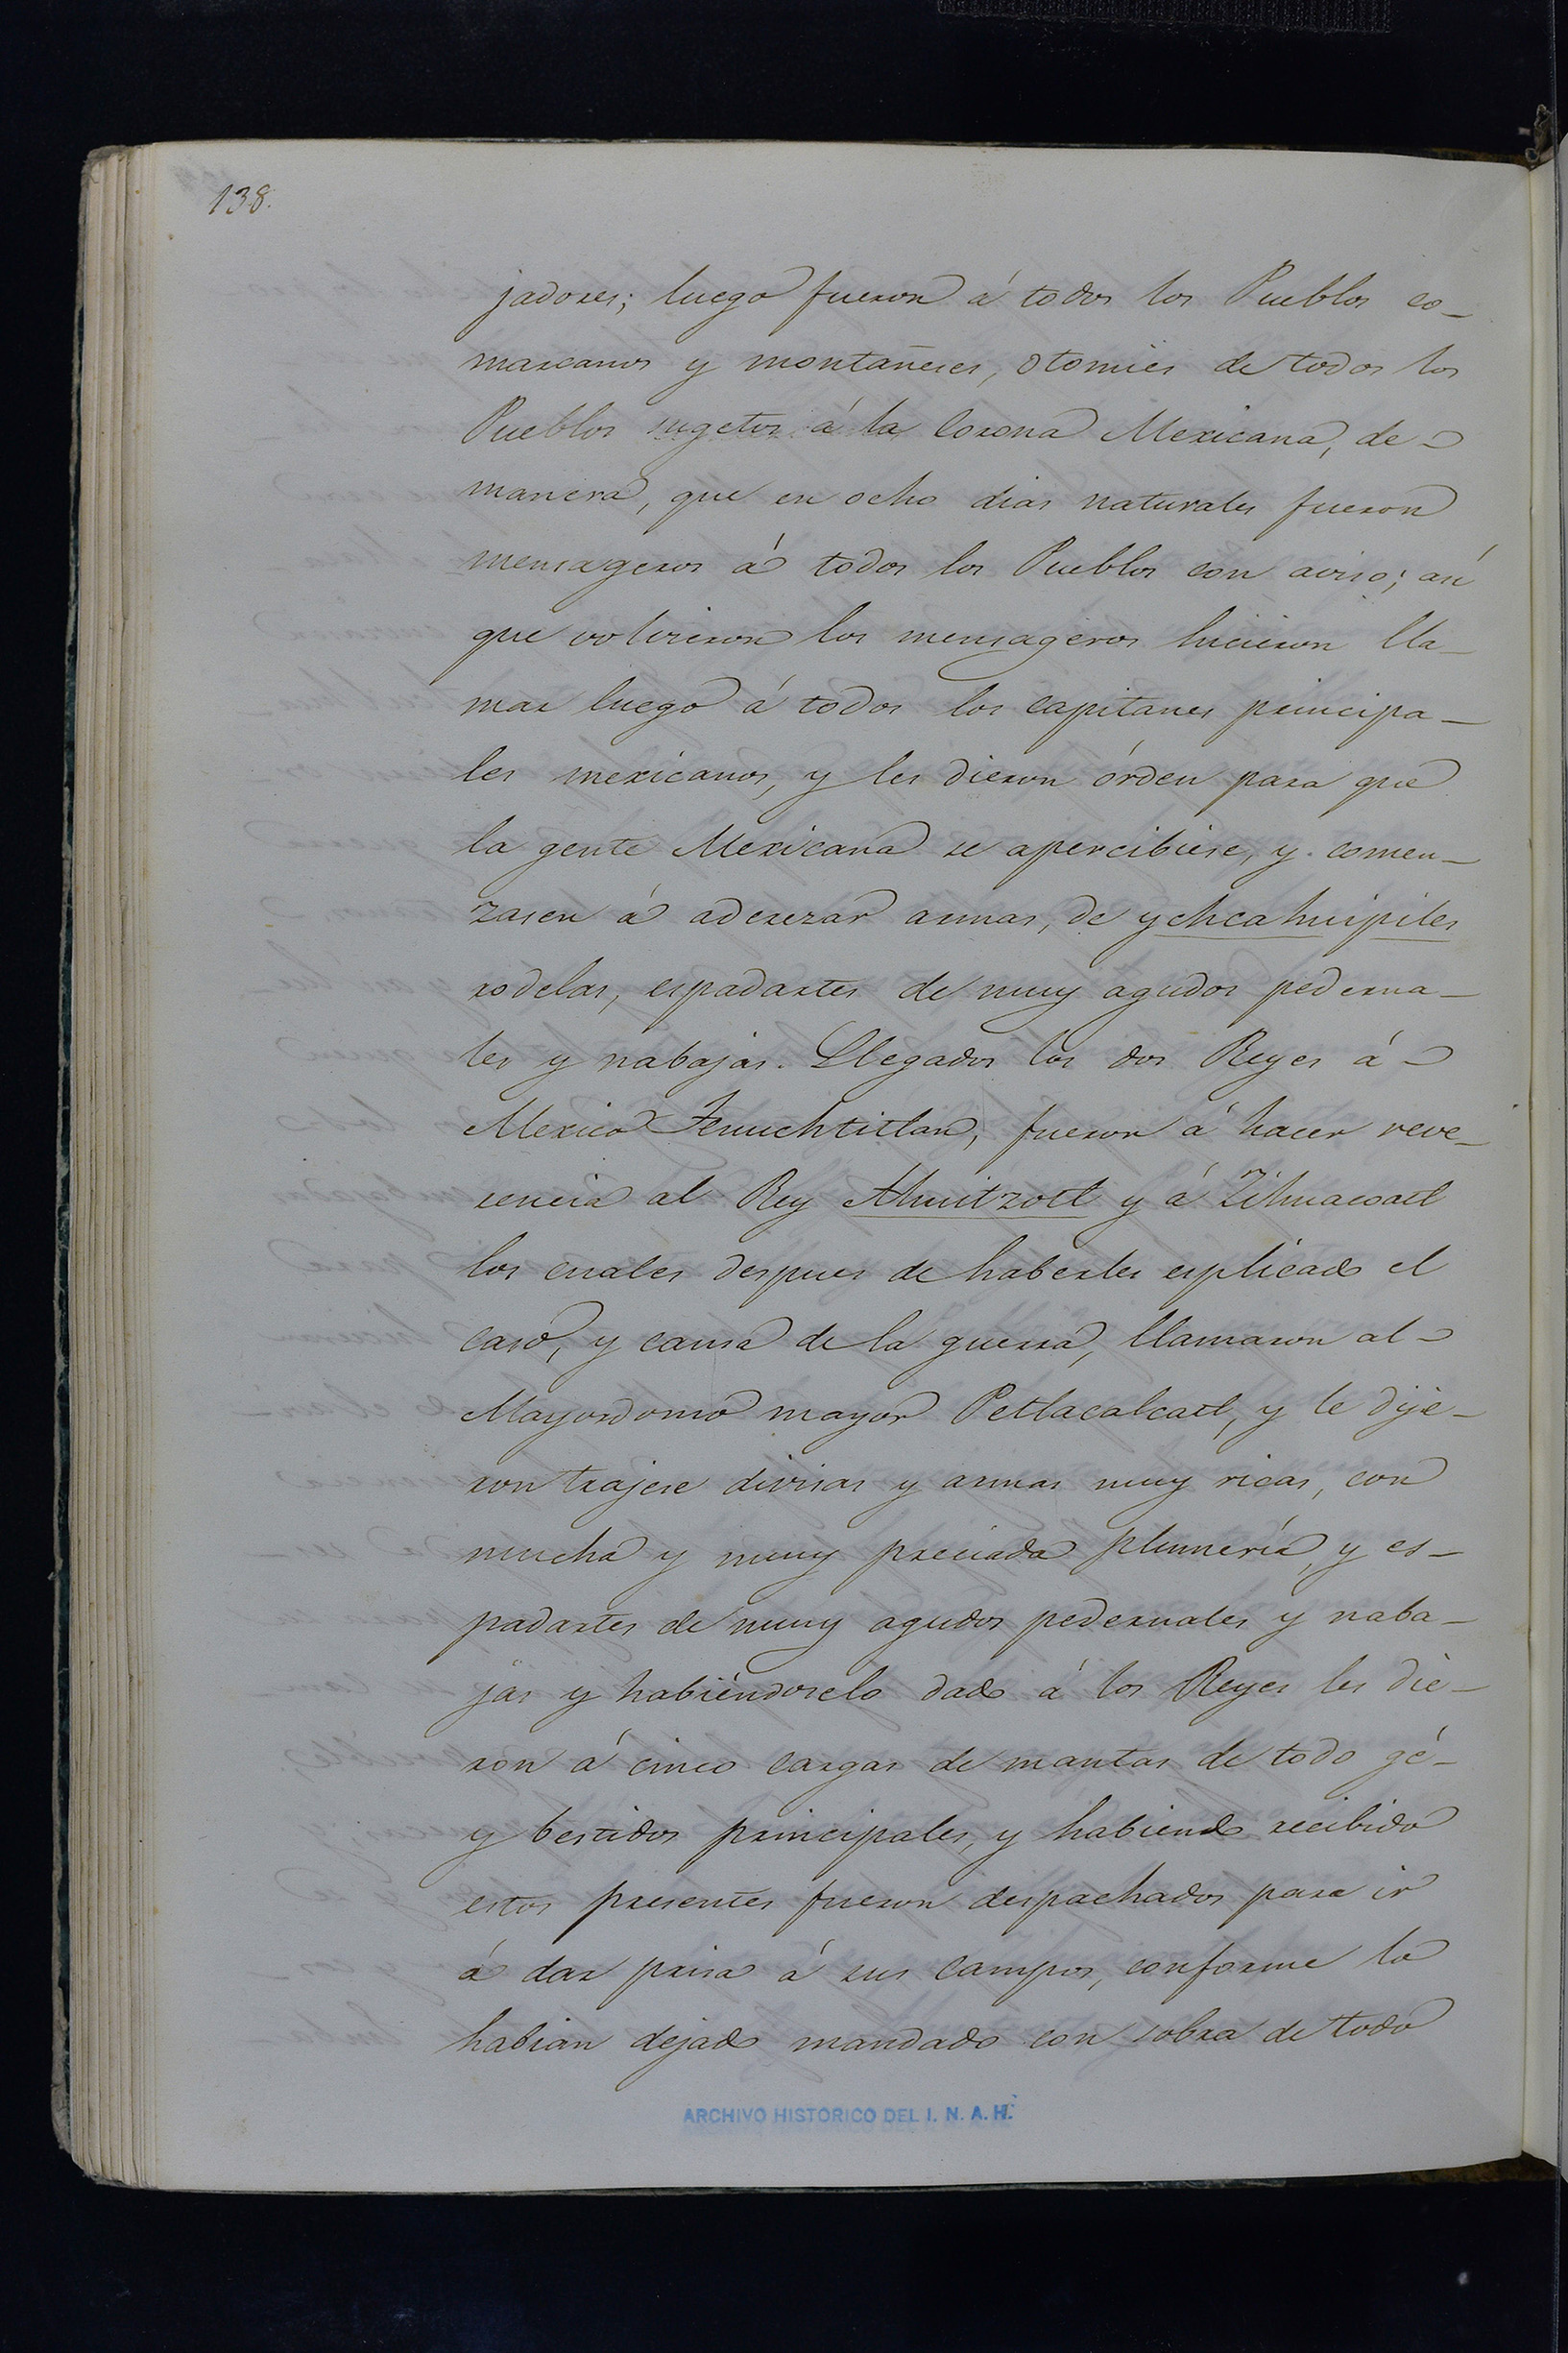 138.
jadores; luego fueron á todos los Pueblos co-
marcanos y montañeses, otomíes de todos los
Pueblos sugetos á la Corona Mexicana, de
manera, que en ocho dias naturales fueron
mensageros á todos los Pueblos con aviso; así
que volvieron los mensageros hicieron lla-
mar luego á todos los capitanes principa-
les mexicanos, y les dieron órden para que
la gente Mexicana se apercibiese, y comen-
zasen á aderezar armas, de ychcahuipiles
rodelas, espadartes de muy agudos pederna-
les y nabajas. Llegados los dos Reyes á
Mexico Tenuchtitlan, fueron á hacer reve-
rencia al Rey Ahuitzotl y á Zihuacoatl
los cuales despues de haberles esplicado el
caso, y causa de la guerra, llamaron al
Mayordomo mayor Petlacalcatl, y le dije-
ron trajese divisas y armas muy ricas, con
mucha y muy preciada plumería, y es-
padartes de muy agudos pedernales y naba-
jas y habiéndoselo dado á los Reyes les die-
ron á cinco cargas de mantas de todo gé-
y bestidos principales, y habiendo recibido
estos presentes fueron despachados para ir
á dar prisa á sus campos, conforme lo
habian dejado mandado con sobra de todo
ARCHIVO HISTORICO DEL I. N. A. H.